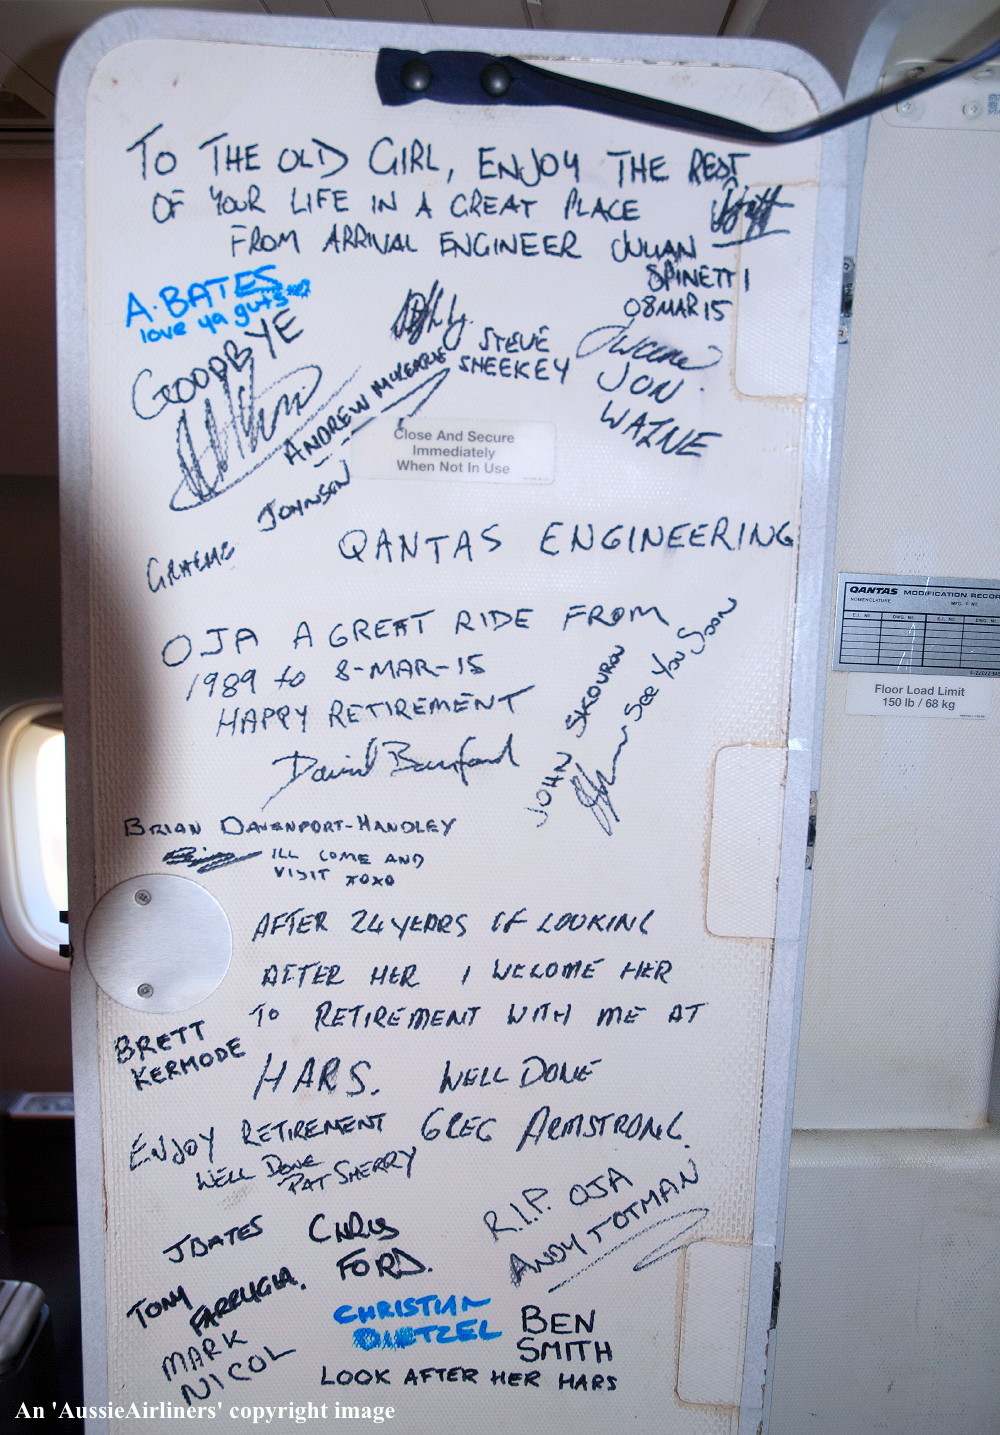 TO THE OLD GIRL, ENJOY THE REST
OF YOUR LIFE IN A GREAT PLACE
FROM ARRIVAL ENGINEER JULIAN
SPINETTI
08MAR15
A. BATES
love ya guts
GOODBYE
STEVE
SHEEKEY
JON
WAINE
ANDREW
Close And Secure
Immediately
When Not In Use
GRAEME JOHNSON
QANTAS ENGINEERING
OJA A GREAT RIDE FROM
1989 to 8-MAR-15
HAPPY RETIREMENT
David
JOHN SKOUROU
See You Soon
BRIAN DAVENPORT-HANDLEY
ILL COME AND
VISIT XOXO
AFTER 24 YEARS OF LOOKING
AFTER HER I WELCOME HER
TO RETIREMENT WITH ME AT
HARS. WELL DONE
GREG ARMSTRONG.
BRETT
KERMODE
ENJOY RETIREMENT
WELL DONE
PAT SHERRY
R.I.P. OJA
ANDY TOTMAN
J BATES
CHRIS
FORD.
TONY
FARRUGIA.
MARK
NICOL
CHRISTIAN
DIETZEL
BEN
SMITH
LOOK AFTER HER HARS
QANTAS MODIFICATION RECORD
NOMENCLATURE
MFG. P. NO.
E.I. NO. DWG. NO. E.I. NO. DWG. NO.
Floor Load Limit
150 lb / 68 kg
An 'AussieAirliners' copyright image